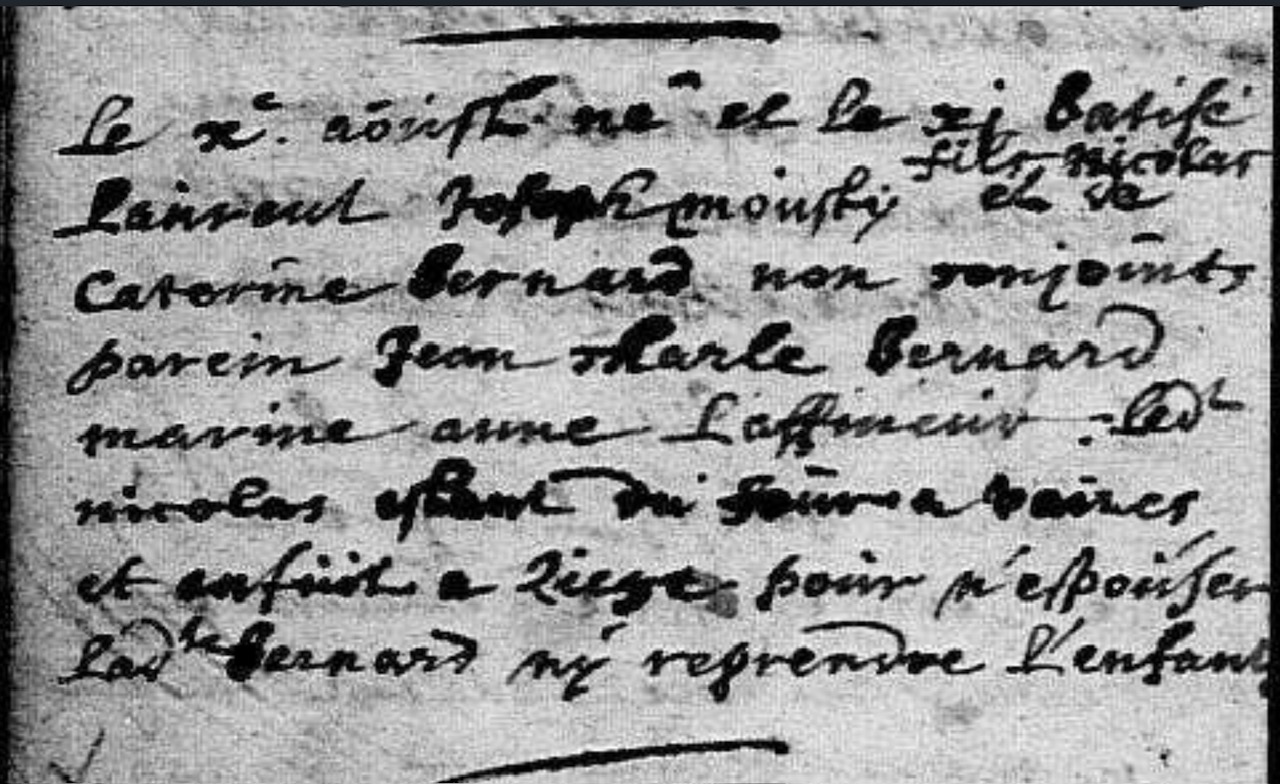 le xe. aoust né et le xj batisé
fils nicolas
Laurent Joseph mousty et de
Catorine Bernard non conjoints
parein Jean Marle Bernard
marine anne Laffineur : led^t
nicolas estant du a
et enfuit a Liege pour n'espouser
lad^te Bernard ny reprendre l'enfant